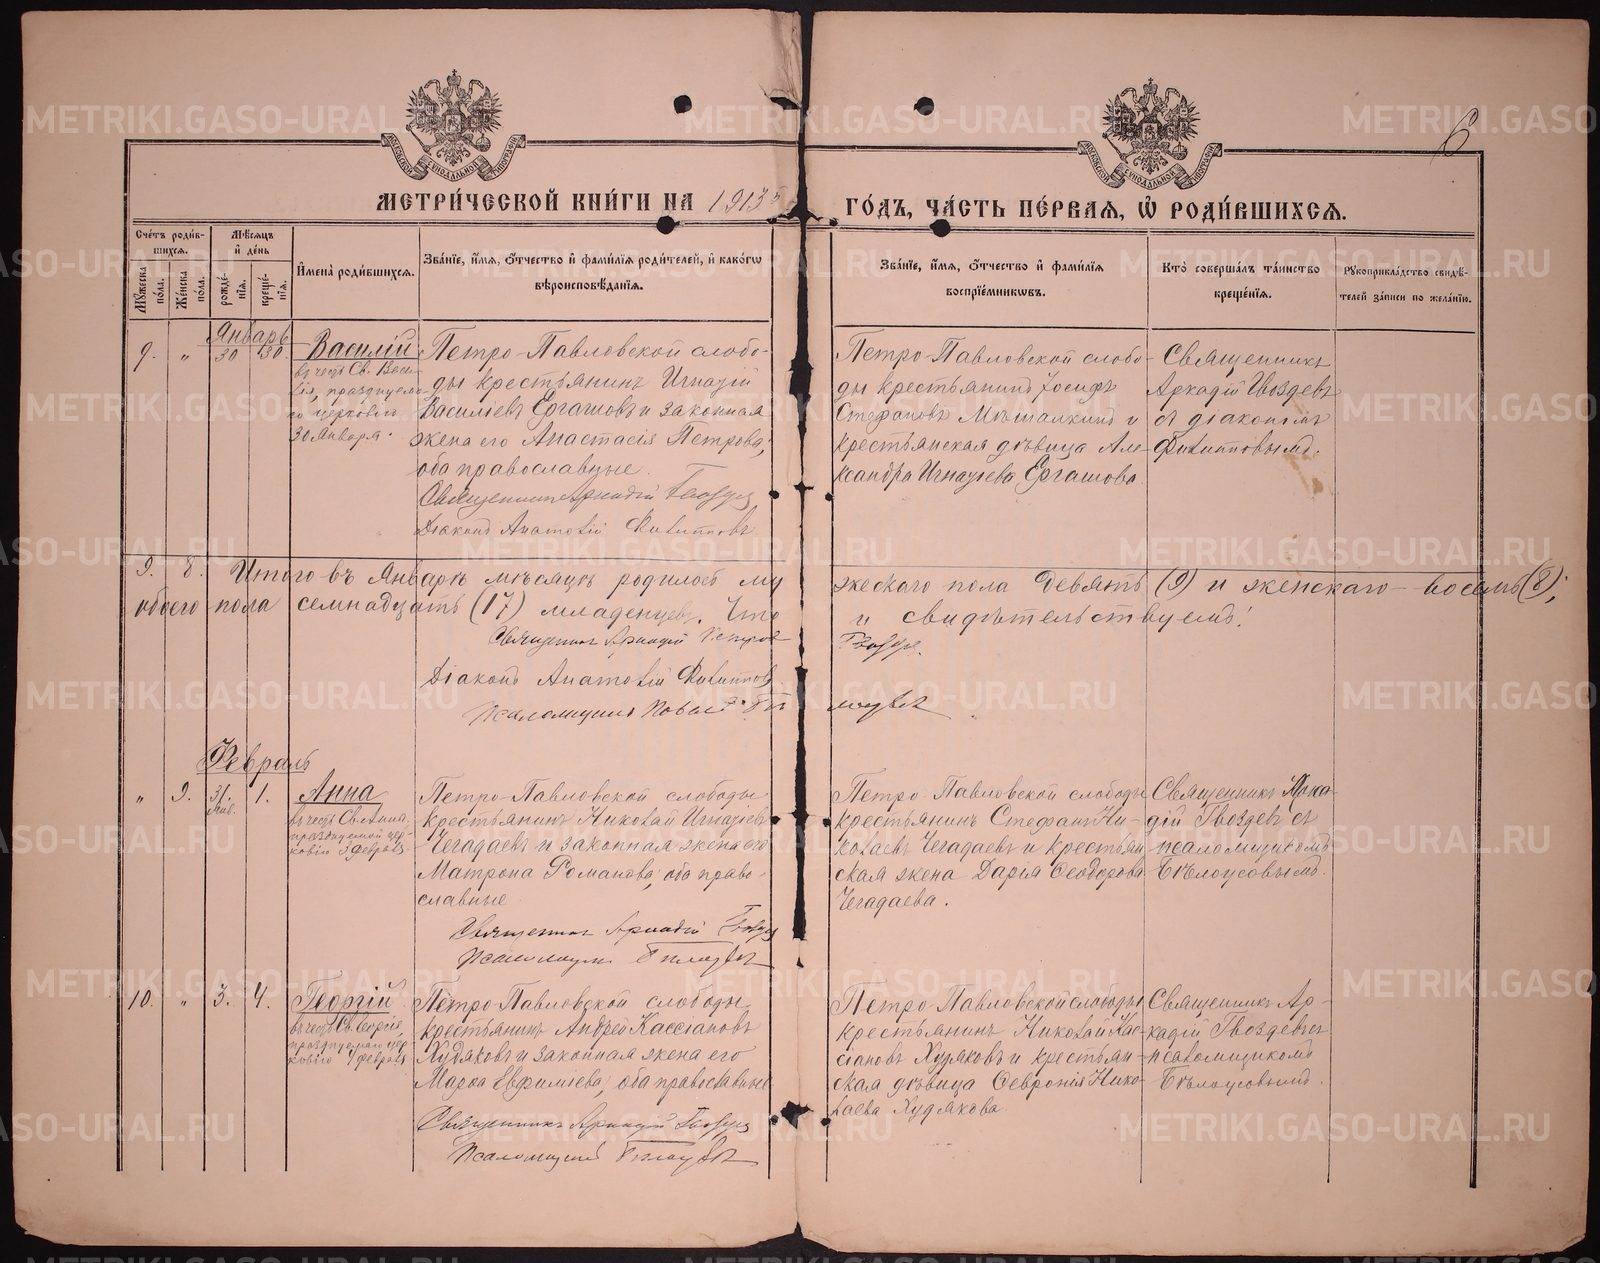 6
МОСКОВСКОЙ СѴНОДАЛЬНОЙ ТИПОГРАФІИ
МОСКОВСКОЙ СѴНОДАЛЬНОЙ ТИПОГРАФІИ
МЕТРИ́ЧЕСКОЙ КНИ́ГИ НА 1913й ГО́ДЪ, ЧА́СТЬ ПЕ́РВАЯ, Ѡ҆ РОДИ́ВШИХСЯ.
Сче́тъ роди́в-
шихся.
Мѣ́сяцъ
и҆ де́нь
Му́жеска
по́ла.
Же́нска
по́ла.
рожде́-
нїя.
креще́-
нїя.
И҆мена̀ роди́вшихся.
Зва́нїе, и҆́мя, о҆́тчество и҆ фами́лїя роди́телей, и҆ како́гѡ
вѣроисповѣ́данїя.
Зва́нїе, и҆́мя, о҆́тчество и҆ фами́лїя
воспрїе́мникѡвъ.
Кто̀ соверша́лъ та́инство
креще́нїя.
Рукоприкла́дство свидѣ́-
телей за́писи по жела́нїю.
Январь
9. " 30 30 Василій
въ честь Св. Васи-
лія, празднуемо-
го церковію
30 Января.
Петро-Павловской слобо-
ды крестьянинъ Игнатій
Васильевъ Ергашовъ и законная
жена его Анастасія Петрова;
оба православные.
Священникъ Аркадій Гвоздевъ
Діаконъ Анатолій Филипповъ
Петро-Павловской слобо-
ды крестьянинъ Іосифъ
Стефановъ Мѣшалкинъ и
крестьянская дѣвица Але-
ксандра Игнатіева Ергашова
Священникъ
Аркадій Гвоздевъ
съ діакономъ
Филипповымъ.
9. 8. Итого въ Январѣ мѣсяцѣ родилось мужескаго пола девять (9) и женскаго - восемь (8);
обоего пола семнадцать (17) младенцевъ. Что и свидѣтельствуемъ!
Священникъ Аркадій Гвоздевъ
Діаконъ Анатолій Филипповъ
Псаломщикъ
Февраль
" 9. 31 Янв. 1. Анна
въ честь Св. Анны,
празднуемой цер-
ковію 3 февраля
Петро-Павловской слободы
крестьянинъ Николай Игнатіевъ
Чегадаевъ и законная жена его
Матрона Романова, оба право-
славные
Священникъ Аркадій Гвоздевъ
Псаломщикъ Бѣлоусовъ
Петро-Павловской слободы
крестьянинъ Стефанъ Ни-
колаевъ Чегадаевъ и крестьян-
ская жена Дарія Ѳеодорова
Чегадаева.
Священникъ Арка-
дій Гвоздевъ съ
псаломщикомъ
Бѣлоусовымъ.
10. " 3. 4. Георгій
въ честь Св. Георгія,
празднуемаго цер-
ковію 4 февраля
Петро-Павловской слободы
крестьянинъ Андрей Кассіановъ
Худяковъ и законная жена его
Марѳа Евфиміева; оба православные
Священникъ Аркадій Гвоздевъ
Псаломщикъ Бѣлоусовъ
Петро-Павловской слободы
крестьянинъ Николай Кас-
сіановъ Худяковъ и крестьян-
ская дѣвица Февронія Нико-
лаева Худякова
Священникъ Ар-
кадій Гвоздевъ съ
псаломщикомъ
Бѣлоусовымъ.
METRIKI.GASO-URAL.RU